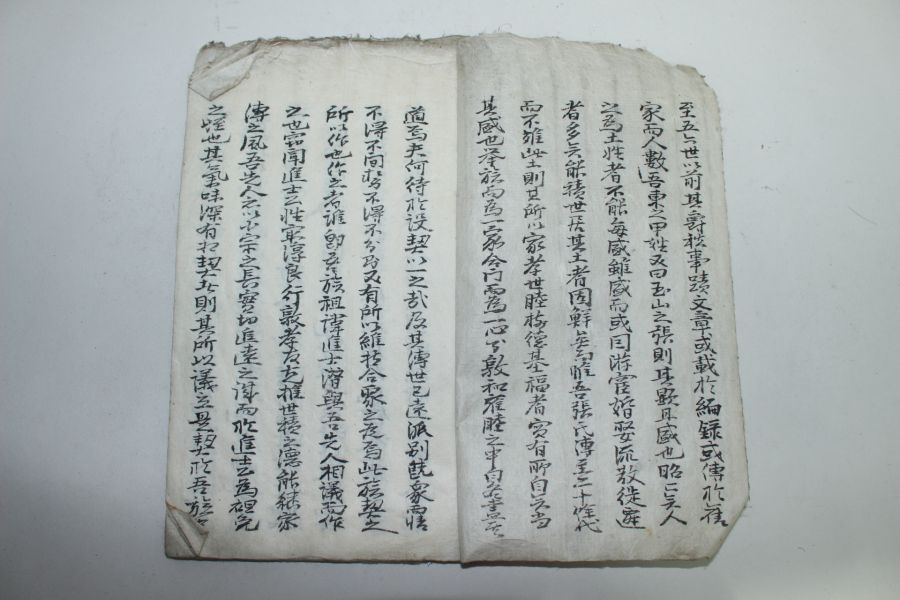 至五六世以前其爵秩事蹟文章或載於編錄或傳於舊
家而人數吾東之甲姓又曰玉山之張則其顯且盛也昭昭矣人
之爲土姓者不能每盛雖盛而或因游宦婚娶流散徙遷
者多矣能積世居其土者固鮮矣惟吾張氏傳至二十餘代
而不離此土則其所以家孝世睦務德基福者實有所自矣當
其盛也擧族而爲一家合門而爲一心敦和雍睦之中自
道焉夫何待於設契以一之哉及其傳世已遠派別旣衆而情
不得不間勢不得不分則又有所以維持合聚之度焉此族契之
所以作也作之者誰卽吾族祖諱進士潛與吾先人相議而作
之也窃聞進士公性實淳良行敦孝友克推世積之德能繼家
傳之風吾先人以小宗之長實切追遠之誠而於進士公爲
之姪也其氣味深有相契者則其所以議立是契於吾族